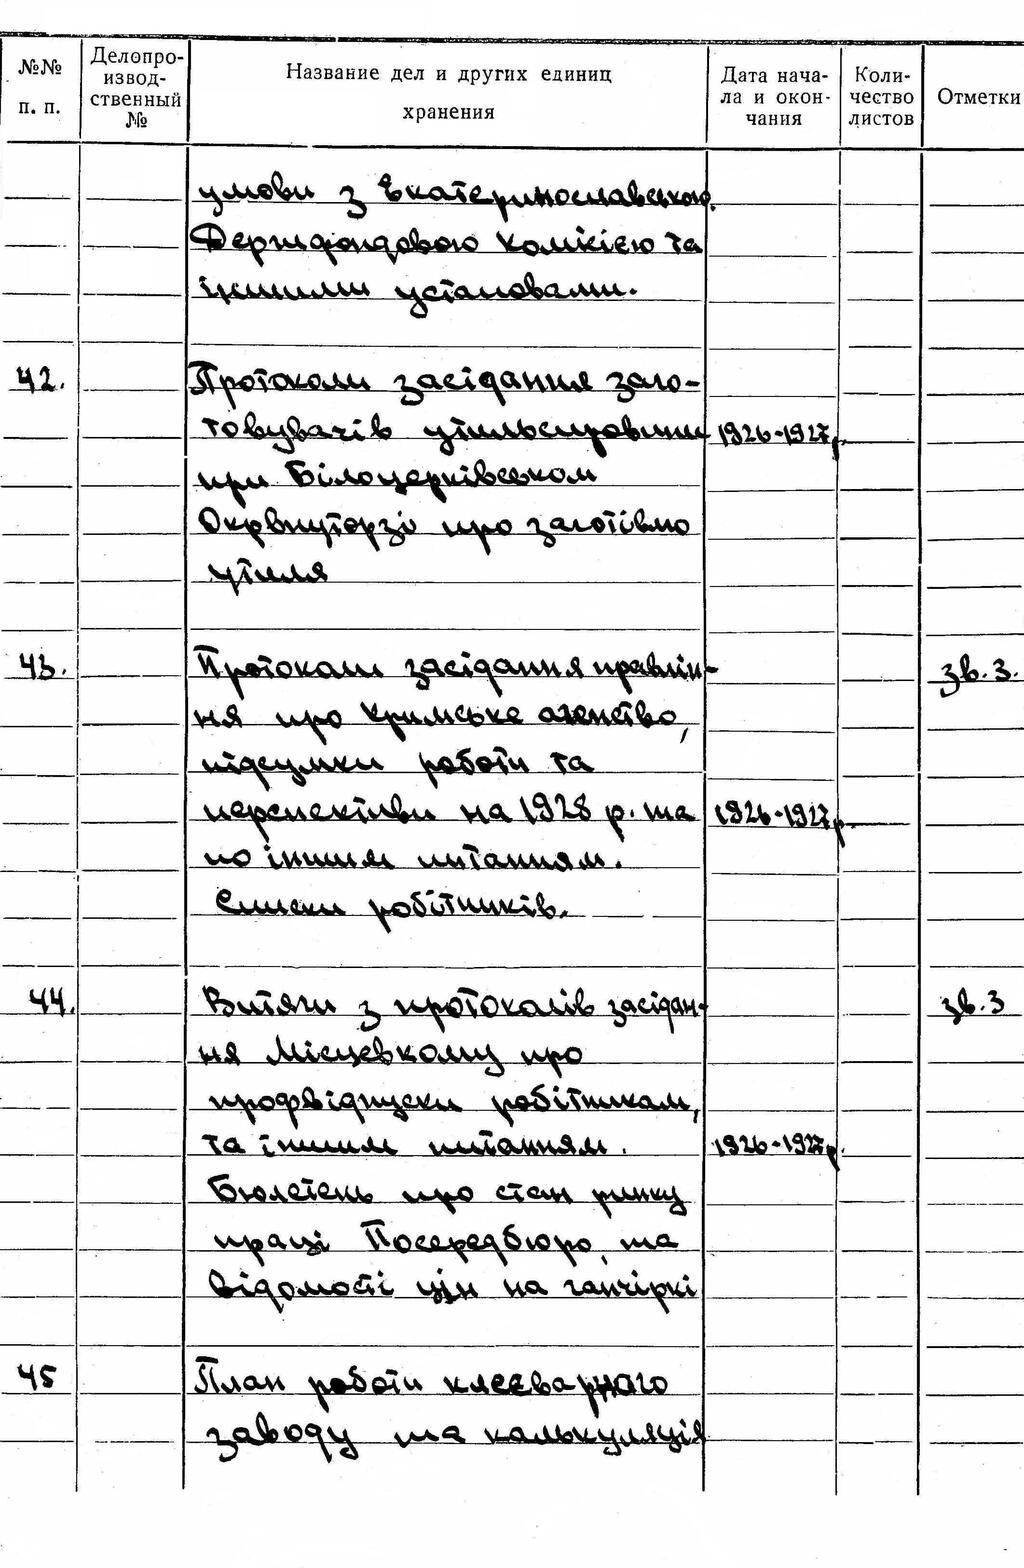 №№ п. п.
Делопро-
извод-
ственный
№
Название дел и других единиц
хранения
Дата нача-
ла и окон-
чания
Коли-
чество
листов
Отметки
умови з Екатеринославською
Держфондовою комісією та
іншими установами.
42.
Протоколи засідання заго-
товувачів утильсировини
1926-1927р.
при Білоцерківському
Окрвнуторзі про заготівлю
утиля
43.
Протоколи засідання правлін-
зв. 3.
ня про Кримське агенство,
підсумки роботи та
перспективи на 1928 р. та
1926-1927р.
по іншим питанням.
Списки робітників.
44.
Витяги з протоколів засідан-
зв. 3
ня Місцевкому про
профвідпуски робітникам,
та іншим питанням.
1926-1927р.
Бюлетень про стан ринку
праці Посередбюро, та
відомості цін на ганчіркі
45
План роботи клеєварного
заводу та калькуляція